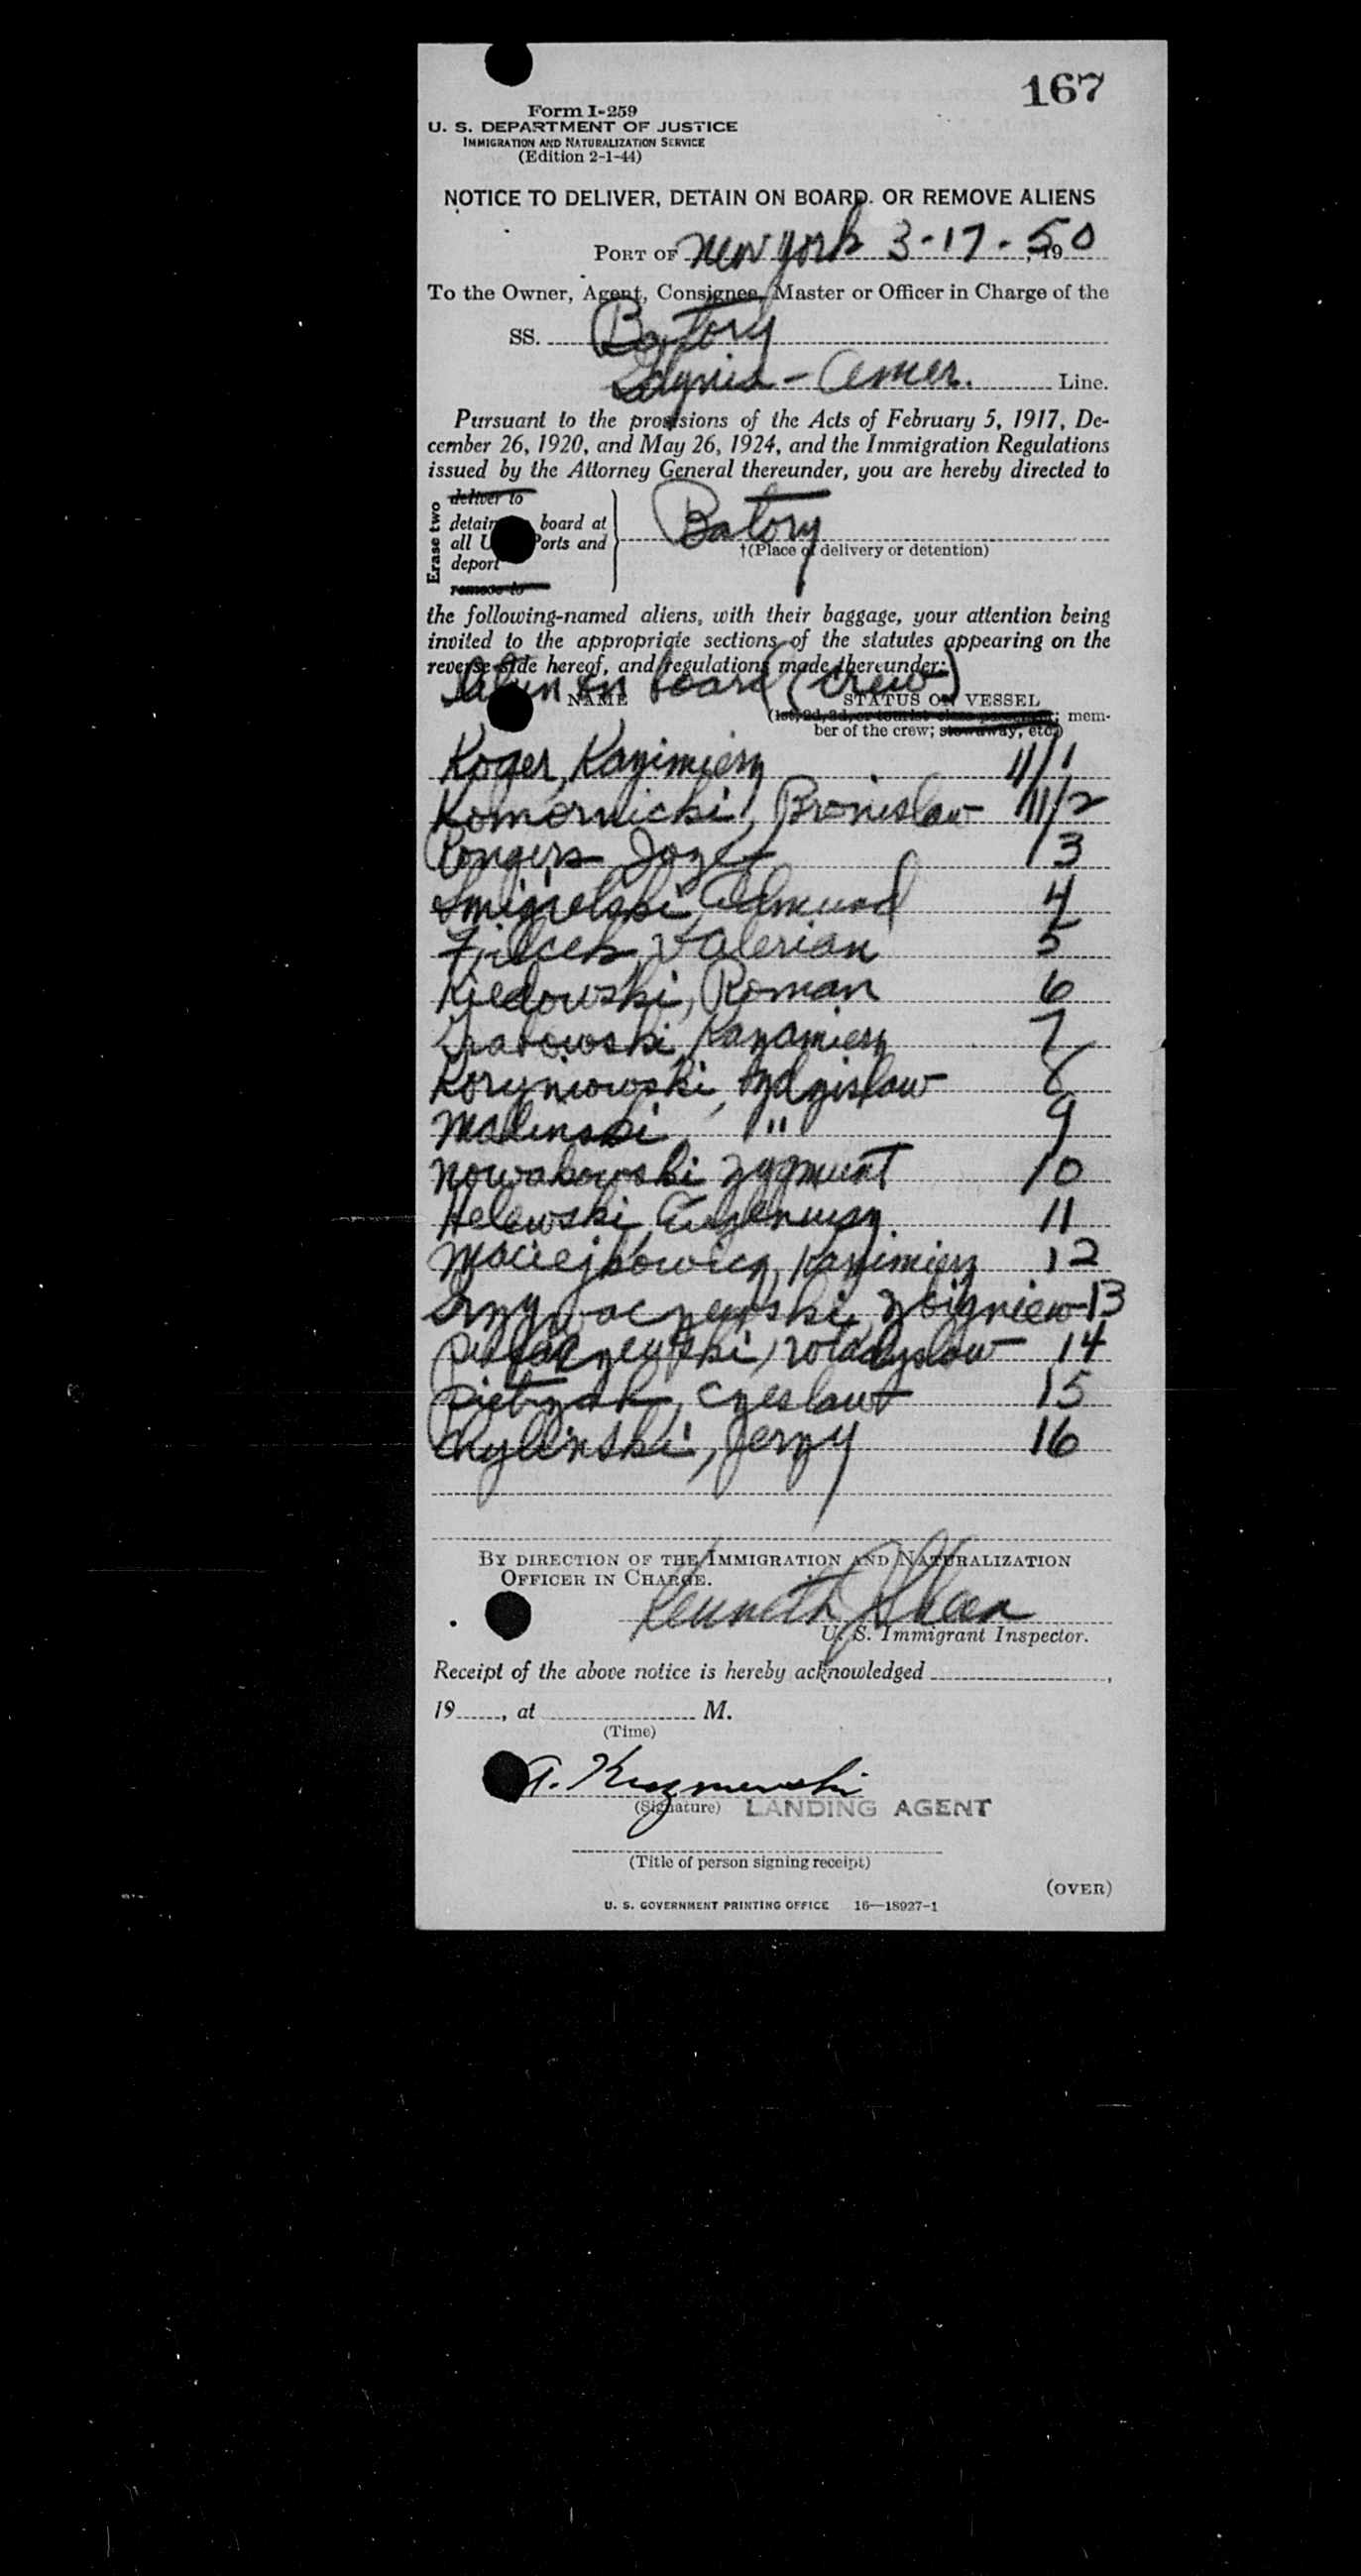 167
Form I-259
U. S. DEPARTMENT OF JUSTICE
IMMIGRATION AND NATURALIZATION SERVICE
(Edition 2-1-44)
NOTICE TO DELIVER, DETAIN ON BOARD, OR REMOVE ALIENS
PORT OF New York 3-17-, 1950
To the Owner, Agent, Consignee, Master or Officer in Charge of the
SS. Batory
Gdynia - Amer. Line.
Pursuant to the provisions of the Acts of February 5, 1917, De-
cember 26, 1920, and May 26, 1924, and the Immigration Regulations
issued by the Attorney General thereunder, you are hereby directed to
Erase two
deliver to
detain board at
all U Ports and
deport
remove to
Batory
†(Place of delivery or detention)
the following-named aliens, with their baggage, your attention being
invited to the appropriate sections of the statutes appearing on the
reverse side hereof, and regulations made thereunder:
on board (crew)
NAME STATUS ON VESSEL
(1st, 2d, 3d, or tourist class passenger; mem-
ber of the crew; stowaway, etc.)
Koger, Kazimierz 11/1
Komornicki, Bronislaw 11/2
Jozef 13
Smigielski, Edmund 4
Valerian 5
Roman 6
Grabowski, Kazamierz 7
Zdzislaw 8
Malinski, " 9
Nowakowski Zygmunt 10
Helewski, Eugeniusz 11
Maciejkowicz, Kazimierz 12
Zbigniew 13
Wladyslaw 14
Pietrzak, Czeslaw 15
Chylinski, Jerzy 16
BY DIRECTION OF THE IMMIGRATION AND NATURALIZATION
OFFICER IN CHARGE.
Kenneth J Shea
U. S. Immigrant Inspector.
Receipt of the above notice is hereby acknowledged ,
19 , at M.
(Time)
A.
(Signature) LANDING AGENT
(Title of person signing receipt)
(OVER)
U. S. GOVERNMENT PRINTING OFFICE 16—18927-1